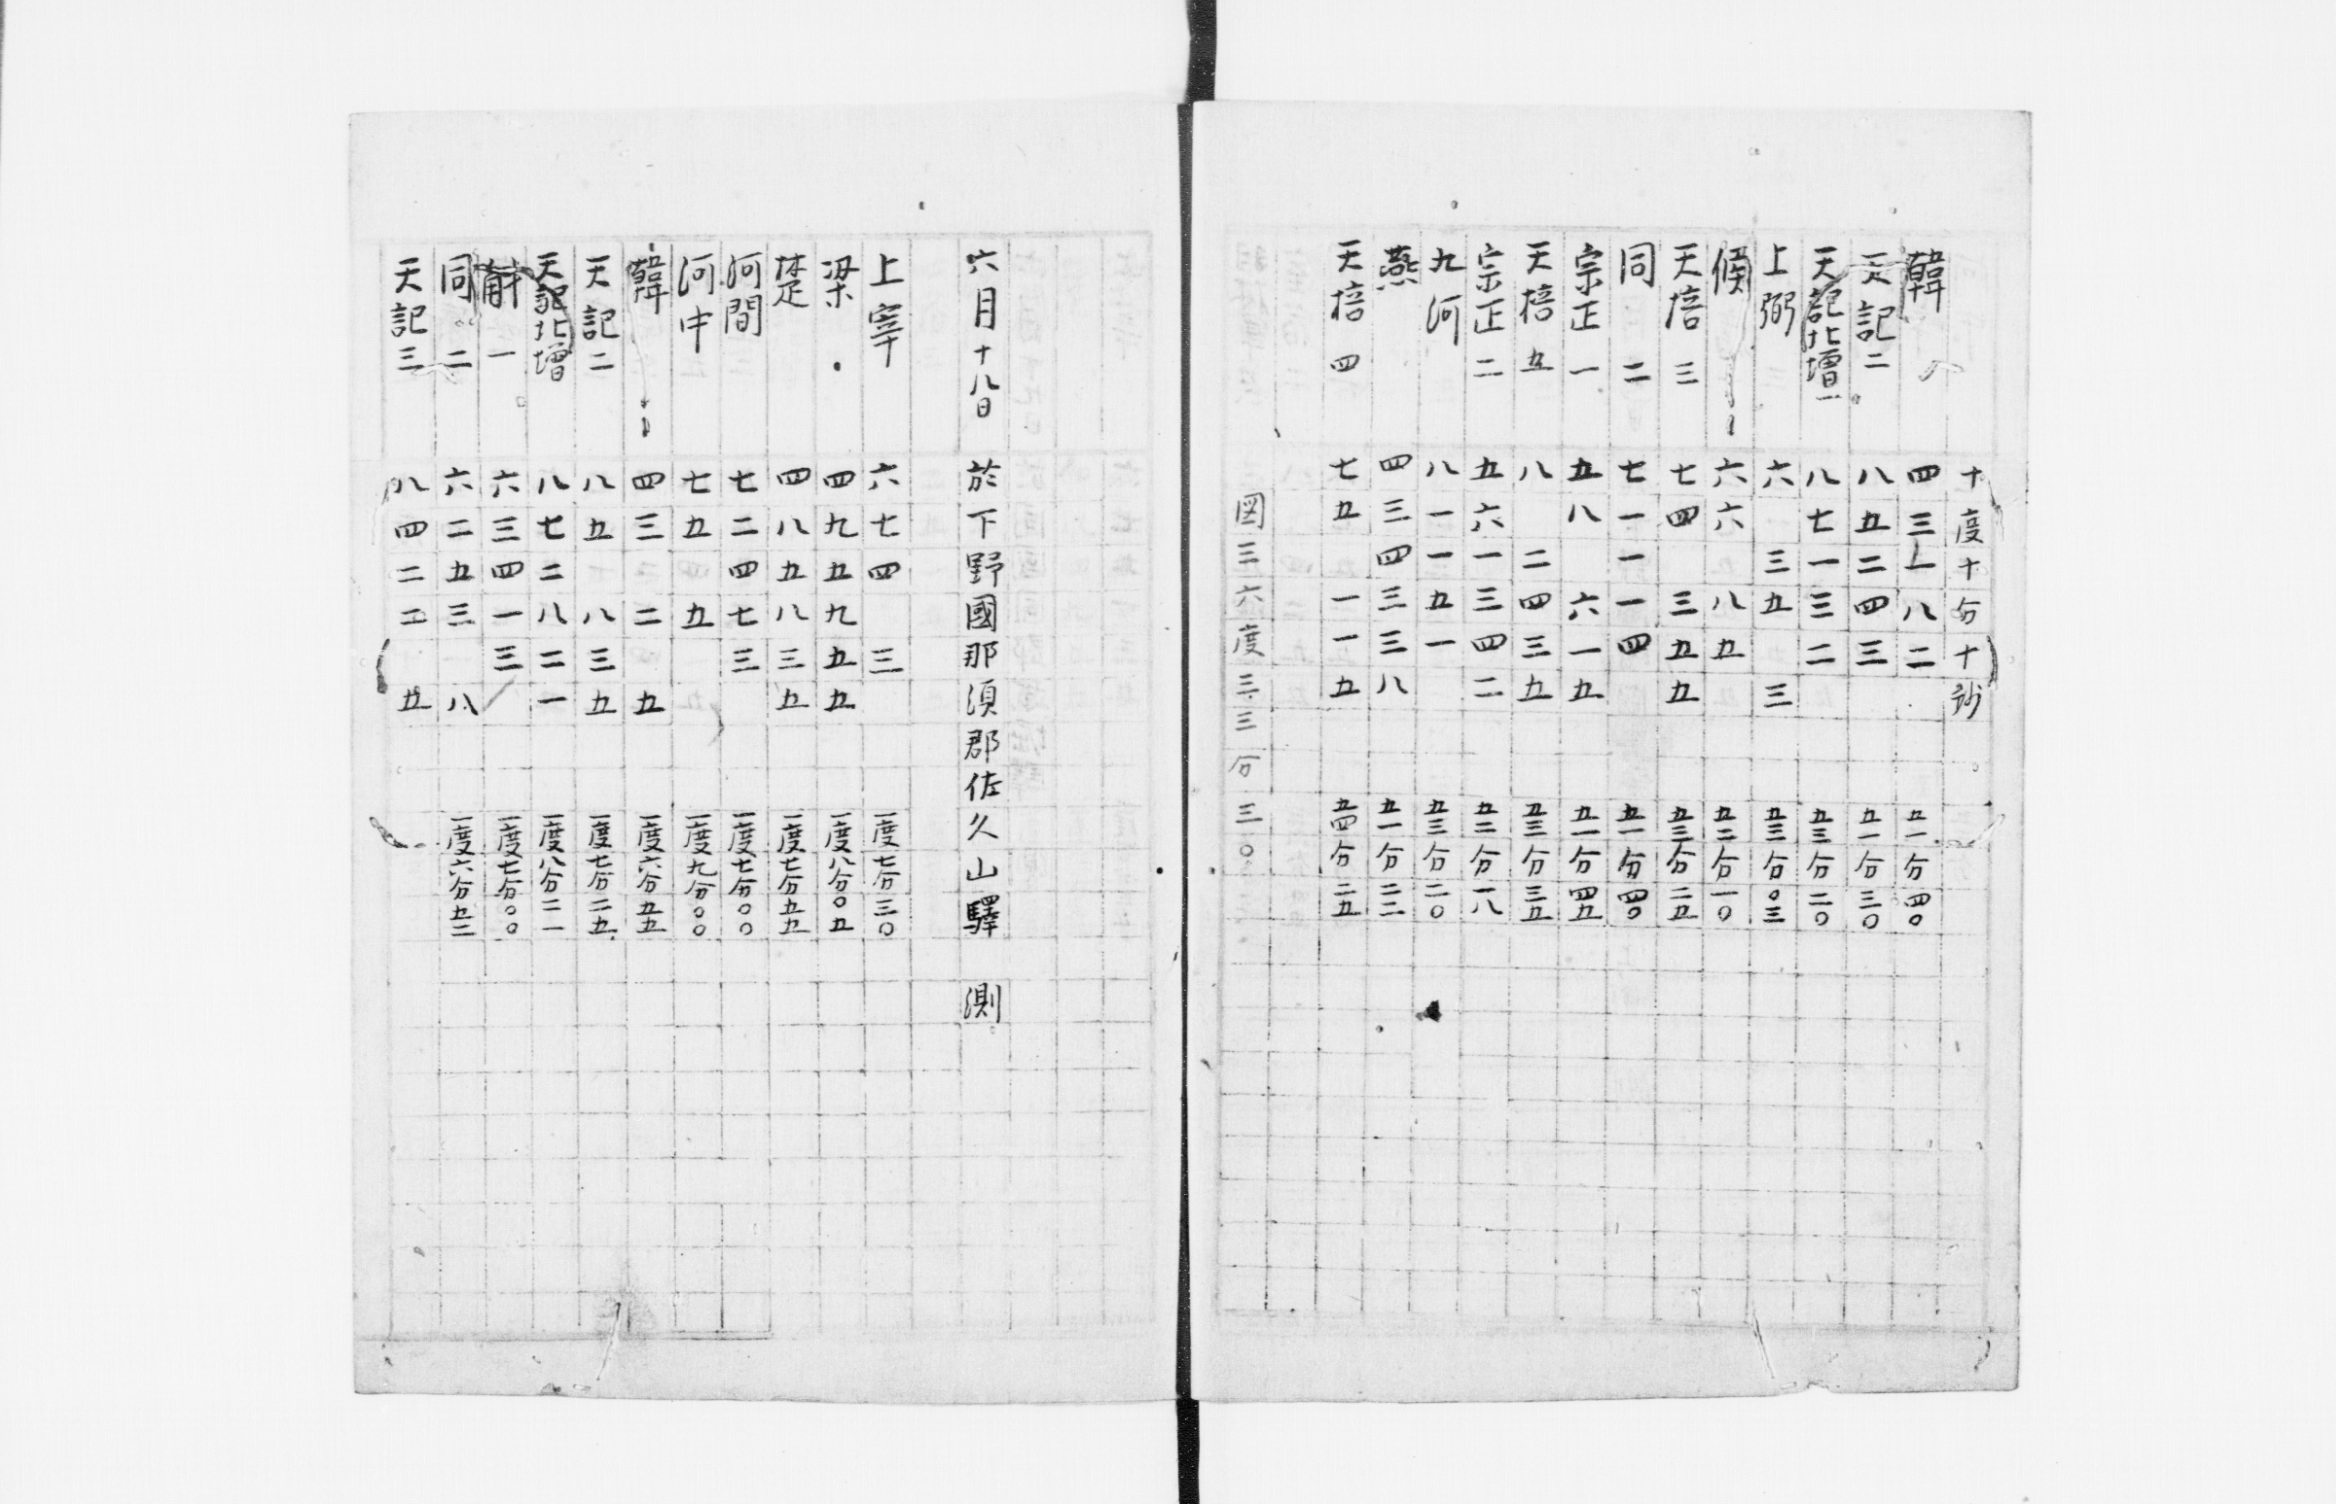 十度十分十秒
韓 四三一八二 五一分四〇
天記二 八五二四三 五一分三〇
天記北増一 八七一三二 五三分二〇
上弼 六 三五 三 五三分〇三
候一 六六 八五 五二分一〇
天棓三 七四 三五五 五三分二五
同二 七一一一四 五一分四〇
宗正一 五八 六一五 五一分四五
天棓五 八 二四三五 五三分三五
宗正二 五六一三四二 五二分一八
九河 八一一五一 五三分二〇
燕 四三四三三八 五一分二三
天棓四 七五 一一五 五四分二五
図三六度三三分三〇
六月十八日 於下野國那須郡佐久山驛 測
上宰 六七四 三 一度七分三〇
梁 四九五九五五 一度八分〇五
楚 四八五八三五 一度七分五五
河間 七二四七三 一度七分〇〇
河中 七五 五 一度九分〇〇
韓 四三 二 五 一度六分五五
天記二 八五 八三五 一度七分二五
天記北増 八七二八二一 一度八分二一
一 六三四一三 一度七分〇〇
同二 六二五三 八 一度六分五二
天記三 八四二二 五